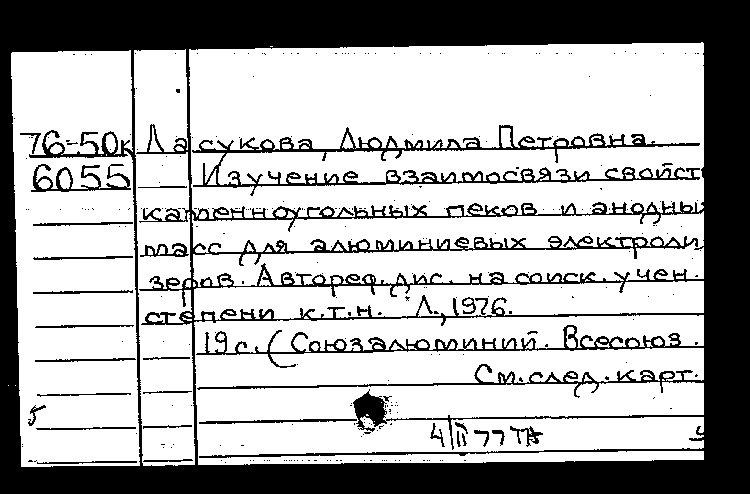 76-50к Ласукова, Людмила Петровна.
6055 Изучение взаимосвязи свойст
каменноугольных пеков и анодны
масс для алюминиевых электроли
зеров. Автореф. дис. на соиск. учен.
степени к.т.н. Л., 1976.
19 с. (Союзалюминий. Всесоюз.
См. след. карт.
5
4/II 77